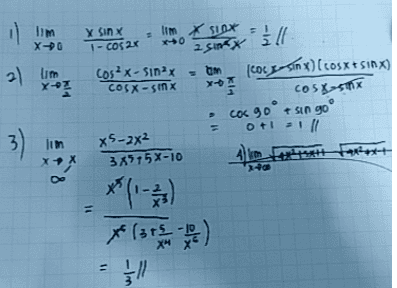 1) lim x→0 x sin x / 1 - cos 2x = lim x→0 x sin x / 2 sin² x = 1/2 //
2) lim x→π/2 cos² x - sin² x / cos x - sin x = lim x→π/2 (cos x - sin x)(cos x + sin x) / cos x - sin x
= cos 90° + sin 90°
= 0 + 1 = 1 //
3) lim x→∞ x⁵ - 2x² / 3x⁵ + 5x - 10
4) lim x→∞
= x⁵ (1 - 2/x³) / x⁵ (3 + 5/x⁴ - 10/x⁵)
= 1/3 //